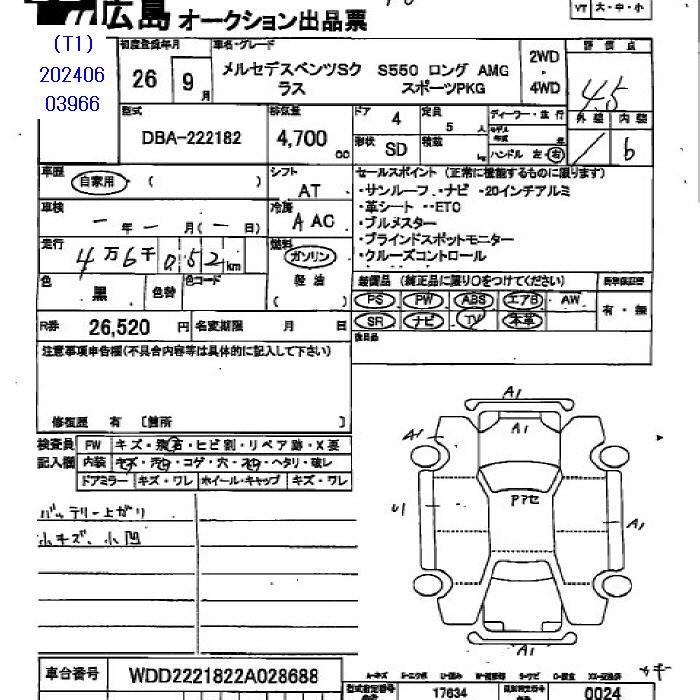 広島 オークション出品票
VT 大・中・小
(T1)
202406
03966
初度登録年月
26 9月
車名・グレード
メルセデスベンツSク S550 ロング AMG
ラス スポーツPKG
2WD
・
4WD
評価点
4.5
外装 内装
b
型式
DBA-222182
排気量
4,700
00
ドア 4
定員 5 人
形状 SD
積載 kg
ディーラー・並行
モデル年式 年
ハンドル 左・右
車歴
自家用 ( )
シフト
AT
車検
ー 年 ー 月(ー 日)
冷房
A AC
走行
4万6千052km
燃料
ガソリン
軽油
( )
色
黒
色替
色コード
R券 26,520 円
名変期限 月 日
セールスポイント (正常に機能するものに限ります)
・サンルーフ ・ナビ ・20インチアルミ
・革シート ・ETC
・ブルメスター
・ブラインドスポットモニター
・クルーズコントロール
装備品 (純正品に限り○をつけてください)
新車保証書
PS PW ABS エアB AW
SR ナビ TV 本革
有・無
後日品
注意事項申告欄(不具合内容等は具体的に記入して下さい)
修復歴 有 [箇所 ]
検査員
記入欄
FW キズ・飛石・ヒビ割・リペア跡・X要
内装 キズ・汚れ・コゲ・穴・スレ・ヘタリ・破レ
ドアミラー キズ・ワレ ホイール・キャップ キズ・ワレ
バッテリー上がり
小キズ、小凹
A1
A1
A1
U1
Pアセ
A1
A1
車台番号 WDD2221822A028688
型式指定番号 17634
類別区分番号 0024